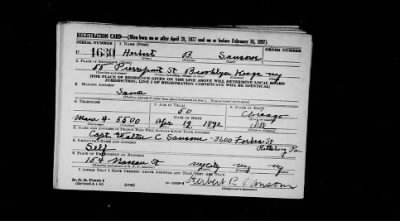 REGISTRATION CARD—(Men born on or after April 28, 1877 and on or before February 16, 1897)
SERIAL NUMBER 1. NAME (Print)
U 1630 Herbert B. Sansom
(First) (Middle) (Last)
2. PLACE OF RESIDENCE (Print)
55 Pierrepont St Brooklyn Kings ny
(THE PLACE OF RESIDENCE GIVEN ON THE LINE ABOVE WILL DETERMINE LOCAL BOARD
JURISDICTION; LINE 2 OF REGISTRATION CERTIFICATE WILL BE IDENTICAL)
3. MAILING ADDRESS
Same
4. TELEPHONE 5. AGE IN YEARS 6. PLACE OF BIRTH
50 Chicago
Main 4 5500 DATE OF BIRTH
Apr 19 1892 Ill
7. NAME AND ADDRESS OF PERSON WHO WILL ALWAYS KNOW YOUR ADDRESS
Capt. Walter C Sansom - 3600 Forbes St Pittsburg Pa
8. EMPLOYER'S NAME AND ADDRESS
Self
9. PLACE OF EMPLOYMENT OR BUSINESS
154 Nassau St ny City ny ny
I AFFIRM THAT I HAVE VERIFIED ABOVE ANSWERS AND THAT THEY ARE TRUE.
D. S. S. Form 1
Herbert B. Sansom